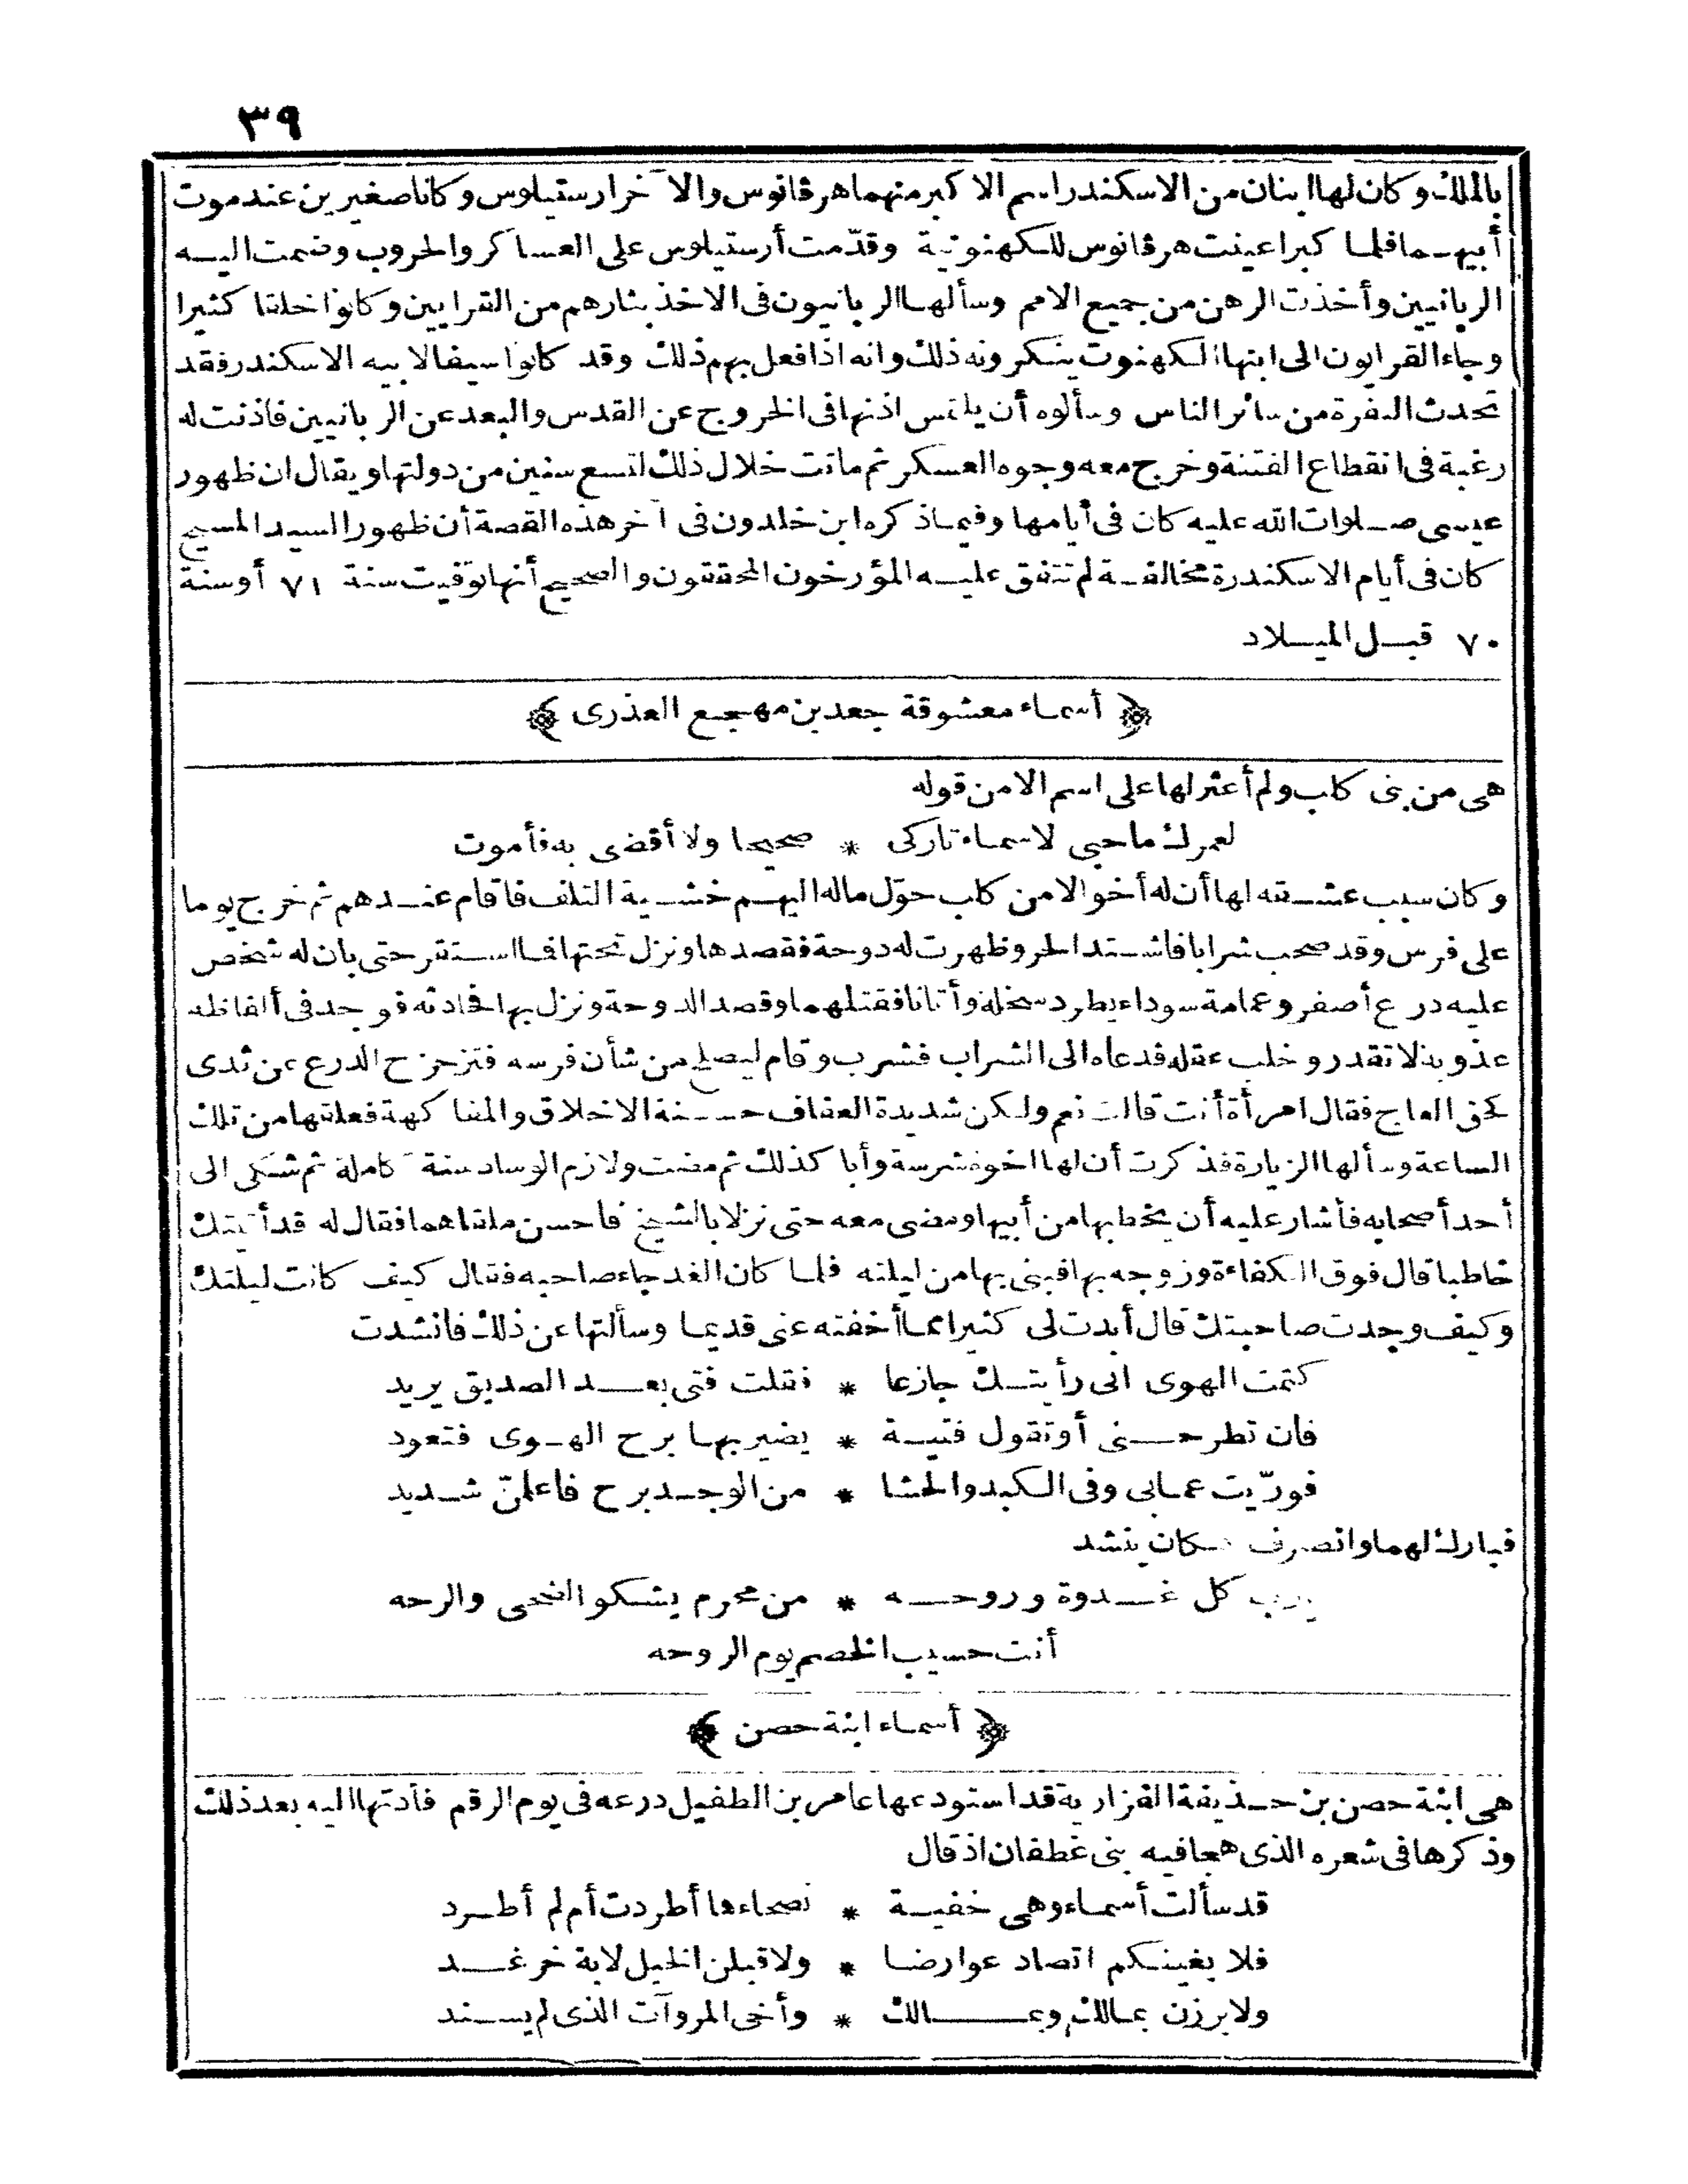 ٣٩
بالملك وكان لها ابنان من الاسكندر اسم الاكبر منهما هرقانوس والآخر ارستبلوس وكانا صغيرين عند موت
أبيهما فلما كبرا عينت هرقانوس للكهنوتية وقدّمت أرستبلوس على العساكر والحروب وضمت اليه
الربانيين وأخذت الرهن من جميع الامم وسألها الربانيون فى الاخذ بثارهم من القرايين وكانوا خلقا كثيرا
وجاء القرايون الى ابنها الكهنوت ينكرونه ذلك وانه اذا فعل بهم ذلك وقد كانوا سيفا لابيه الاسكندر فقد
تحدث النفرة من سائر الناس وسألوه أن يلتمس اذنها فى الخروج عن القدس والبعد عن الربانيين فاذنت له
رغبة فى انقطاع الفتنة وخرج معه وجوه العسكر ثم ماتت خلال ذلك لتسع سنين من دولتها ويقال ان ظهور
عيسى صلوات الله عليه كان فى أيامها وفيما ذكره ابن خلدون فى آخر هذه القصة أن ظهور السيد المسيح
كان فى أيام الاسكندرة مخالفة لم تتفق عليه المؤرخون المحققون والصحيح أنها توفيت سنة ٧١ أو سنة
٧٠ قبل الميلاد
﴿ أسماء معشوقة جعد بن مهجع العذرى ﴾
هى من بنى كلب ولم أعثر لها على اسم الا من قوله
لعمرك ما حبى لاسماء تاركى * صحيحا ولا أقضى به فأموت
وكان سبب عشقه لها أن له أخوالا من كلب حوّل ماله اليهم خشية التلف فاقام عندهم ثم خرج يوما
على فرس وقد صحب شرابا فاشتد الحر وظهرت له دوحة فقصدها ونزل تحتها فما استقر حتى بان له شخص
عليه درع أصفر وعمامة سوداء يطرد سخلة وأتانا فقتلهما وقصد الدوحة ونزل بها فحادثه فوجد فى ألفاظه
عذوبة لا تقدر وخلب عقله فدعاه الى الشراب فشرب وقام ليصلح من شأن فرسه فتزحزح الدرع عن ثدى
كحق العاج فقال امرأة أنت قالت نعم ولكن شديدة العفاف حسنة الاخلاق والمفاكهة فعلقتها من تلك
الساعة وسألها الزيارة فذكرت أن لها اخوة شرسة وأبا كذلك ثم مضت ولازم الوساد سنة كاملة ثم شكى الى
أحد أصحابه فأشار عليه أن يخطبها من أبيها ومضى معه حتى نزلا بالشيخ فاحسن ملقاهما فقال له قد أتيتك
خاطبا قال فوق الكفاءة وزوجه بها فبنى بها من ليلته فلما كان الغد جاء صاحبه فقال كيف كانت ليلتك
وكيف وجدت صاحبتك قال أبدت لى كثيرا مما أخفته عنى قديما وسألتها عن ذلك فانشدت
كتمت الهوى انى رأيتك جازعا * فقلت فتى بعد الصديق يريد
فان تطرحنى أو تقول فتية * يضير بها برح الهوى فتعود
فورّيت عما بى وفى الكبد والحشا * من الوجد برح فاعلمنّ شديد
فبارك لهما وانصرف فكان ينشد
يا رب كل غدوة وروحه * من محرم يشكو الضحى والرحه
أنت حسيب الخصم يوم الروحه
﴿ أسماء ابنة حصن ﴾
هى ابنة حصن بن حذيفة الفزارية قد استودعها عامر بن الطفيل درعه فى يوم الرقم فأدتها اليه بعد ذلك
وذكرها فى شعره الذى هجا فيه بنى غطفان اذ قال
قد سألت أسماء وهى خفية * نصحاءها أطردت أم لم أطرد
فلا بغينكم اتصاد عوارضا * ولاقبلن الخيل لابة خرغد
ولابرزن بمالك وبمالك * وأخى المروآت الذى لم يسند